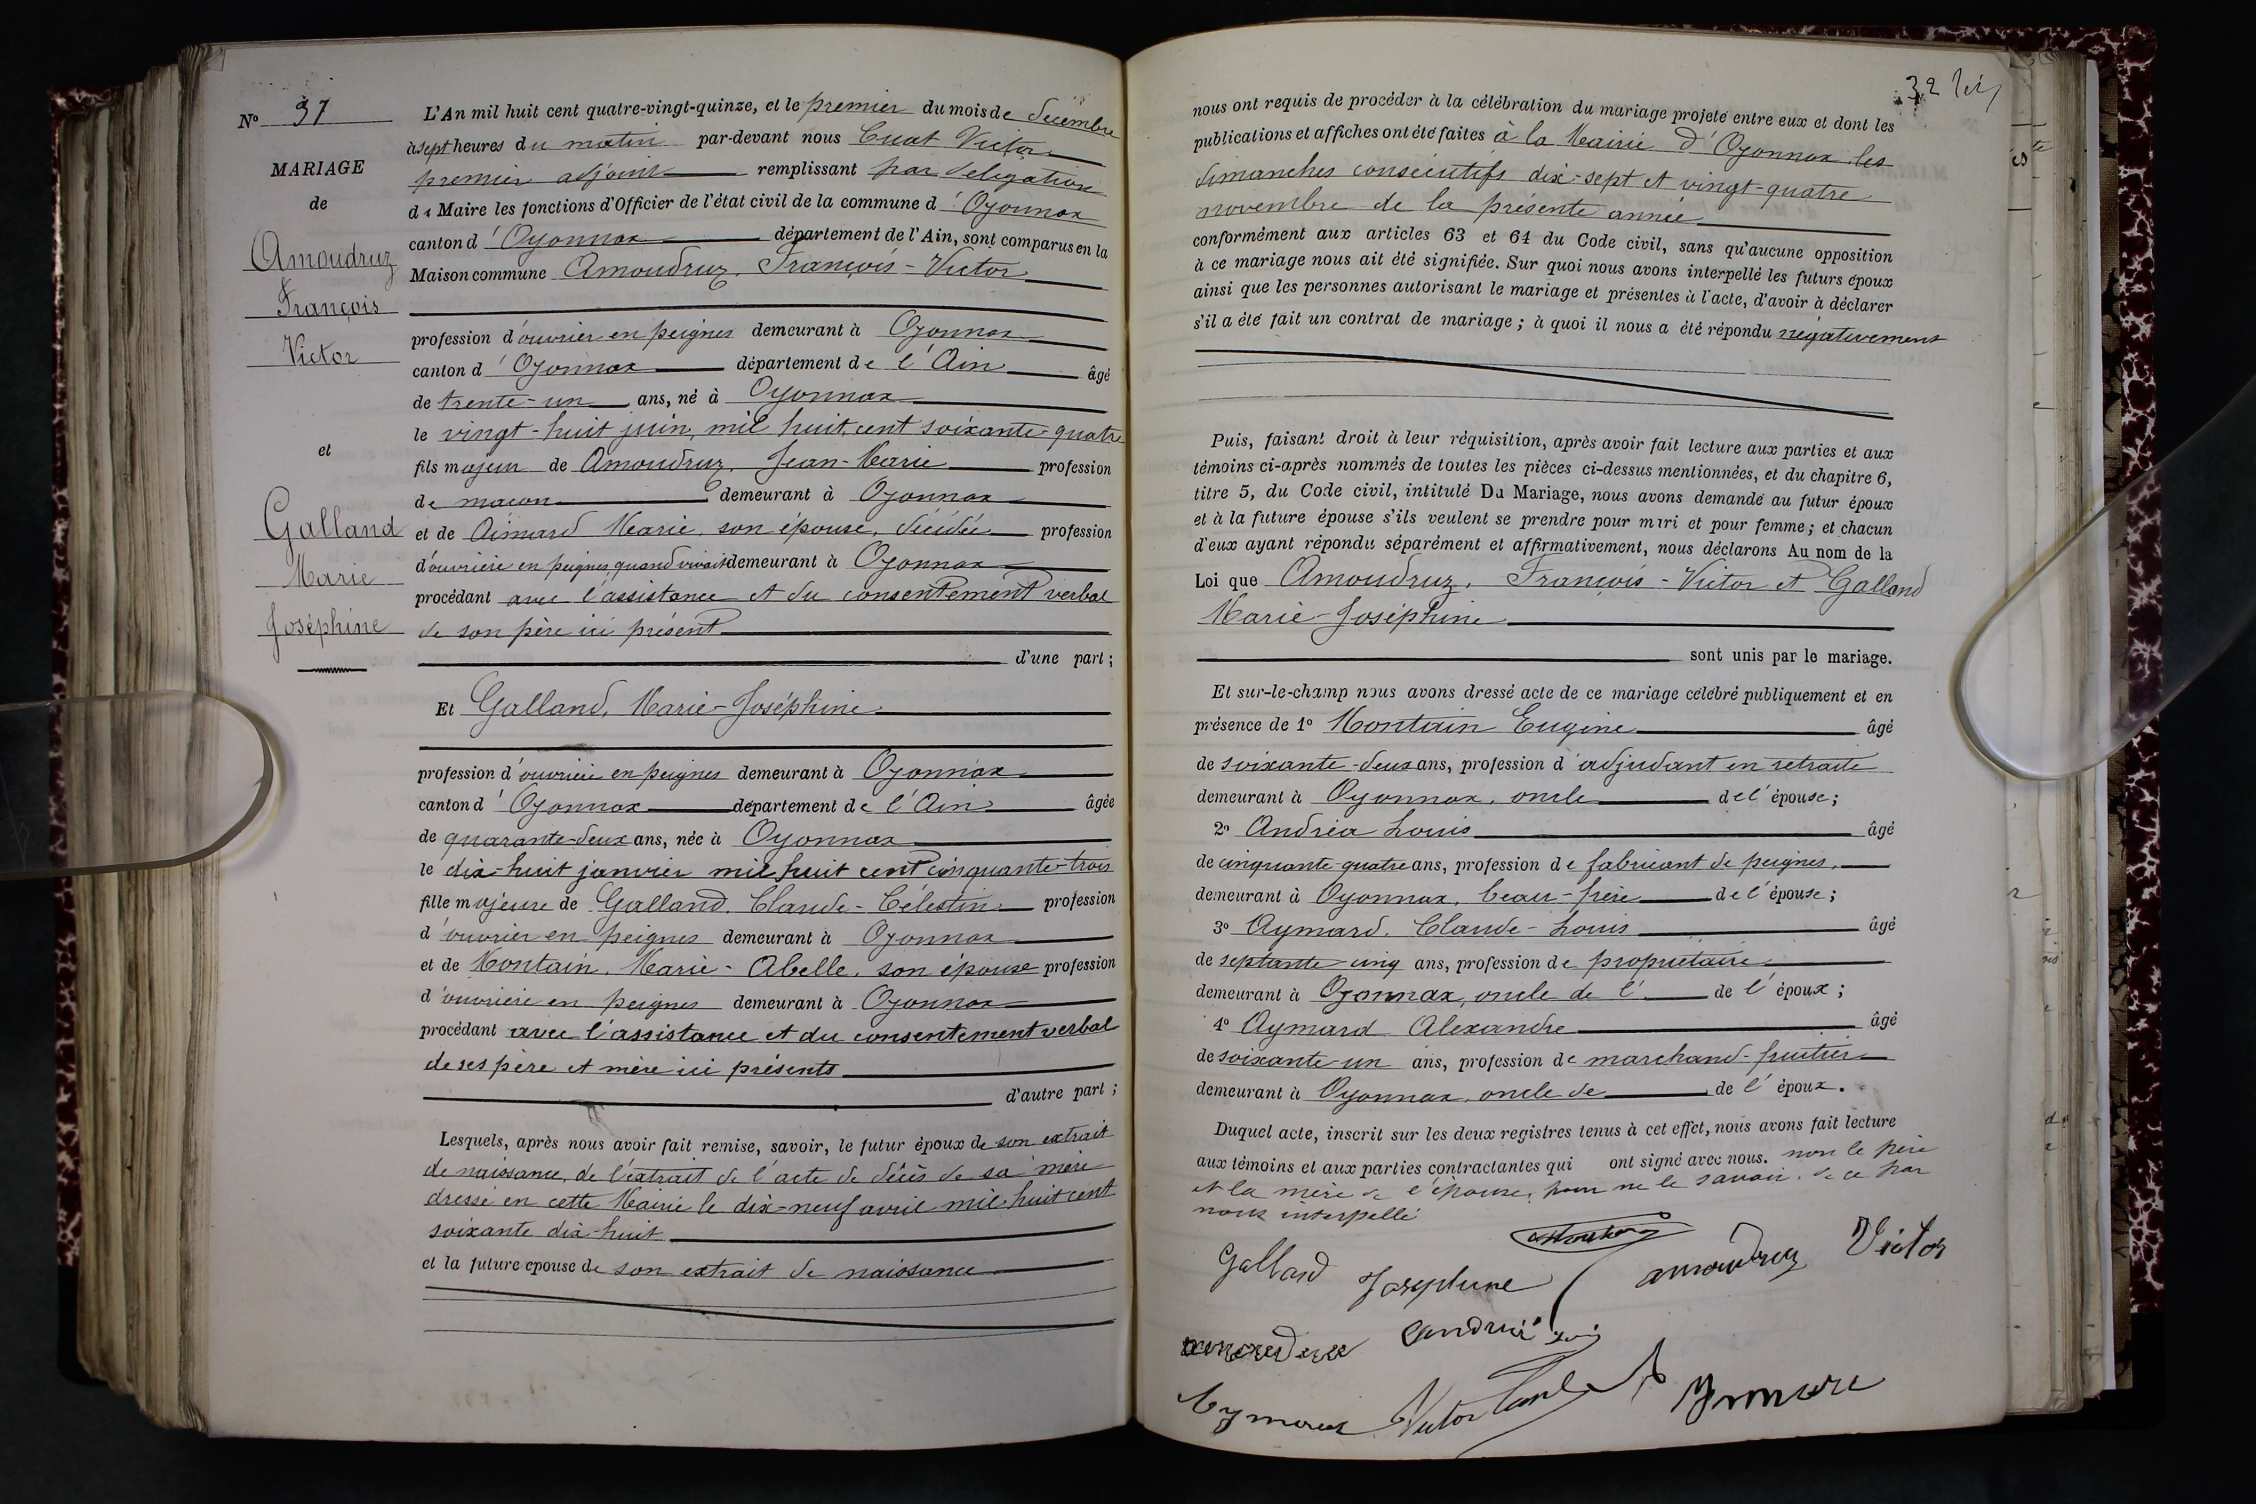 Nº 31
MARIAGE
de
Amoudruz
François
Victor
et
Galland
Marie
Joséphine
L'An mil huit cent quatre-vingt-quinze, et le premier du mois de décembre
à sept heures du matin par-devant nous Cuat Victor
premier adjoint remplissant par délégation
du Maire les fonctions d'Officier de l'état civil de la commune d'Oyonnax
canton d'Oyonnax département de l'Ain, sont comparus en la
Maison commune Amoudruz, François-Victor
profession d'ouvrier en peignes demeurant à Oyonnax
canton d'Oyonnax département de l'Ain âgé
de trente-un ans, né à Oyonnax
le vingt-huit juin, mil huit cent soixante-quatre
fils majeur de Amoudruz, Jean-Marie profession
de maçon demeurant à Oyonnax
et de Aimard Marie, son épouse, décédée profession
d'ouvrière en peignes quand vivait demeurant à Oyonnax
procédant avec l'assistance et du consentement verbal
de son père ici présent
d'une part;
Et Galland, Marie-Joséphine
profession d'ouvrière en peignes demeurant à Oyonnax
canton d'Oyonnax département de l'Ain âgée
de quarante-deux ans, née à Oyonnax
le dix-huit janvier mil huit cent cinquante-trois
fille majeure de Galland, Claude-Célestin profession
d'ouvrier en peignes demeurant à Oyonnax
et de Montain, Marie-Abelle, son épouse profession
d'ouvrière en peignes demeurant à Oyonnax
procédant avec l'assistance et du consentement verbal
de ses père et mère ici présents
d'autre part;
Lesquels, après nous avoir fait remise, savoir, le futur époux de son extrait
de naissance, de l'extrait de l'acte de décès de sa mère
dressé en cette Mairie le dix-neuf avril mil huit cent
soixante dix-huit
et la future epouse de son extrait de naissance
32
nous ont requis de procéder à la célébration du mariage projeté entre eux et dont les
publications et affiches ont été faites à la Mairie d'Oyonnax les
dimanches consécutifs dix-sept et vingt-quatre
novembre de la présente année
conformément aux articles 63 et 64 du Code civil, sans qu'aucune opposition
à ce mariage nous ait été signifiée. Sur quoi nous avons interpellé les futurs époux
ainsi que les personnes autorisant le mariage et présentes à l'acte, d'avoir à déclarer
s'il a été fait un contrat de mariage; à quoi il nous a été répondu négativement
Puis, faisant droit à leur réquisition, après avoir fait lecture aux parties et aux
témoins ci-après nommés de toutes les pièces ci-dessus mentionnées, et du chapitre 6,
titre 5, du Code civil, intitulé Du Mariage, nous avons demandé au futur époux
et à la future épouse s'ils veulent se prendre pour mari et pour femme; et chacun
d'eux ayant répondu séparément et affirmativement, nous déclarons Au nom de la
Loi que Amoudruz, François-Victor et Galland
Marie-Joséphine
sont unis par le mariage.
Et sur-le-champ nous avons dressé acte de ce mariage célébré publiquement et en
présence de 1º Montain Eugène âgé
de soixante-deux ans, profession d'adjudant en retraite
demeurant à Oyonnax, oncle de l'épouse;
2º Andréa Louis âgé
de cinquante-quatre ans, profession de fabricant de peignes,
demeurant à Oyonnax, beau-frère de l'épouse;
3º Aymard, Claude-Louis âgé
de septante-cinq ans, profession de propriétaire
demeurant à Oyonnax, oncle de l' de l'époux;
4º Aymard Alexandre âgé
de soixante-un ans, profession de marchand-fruitier
demeurant à Oyonnax, oncle de de l'époux.
Duquel acte, inscrit sur les deux registres tenus à cet effet, nous avons fait lecture
aux témoins et aux parties contractantes qui ont signé avec nous. non le père
et la mère de l'épouse, pour ne le savoir, de ce par
nous interpellé
Galland Josephine amoudruz Victor